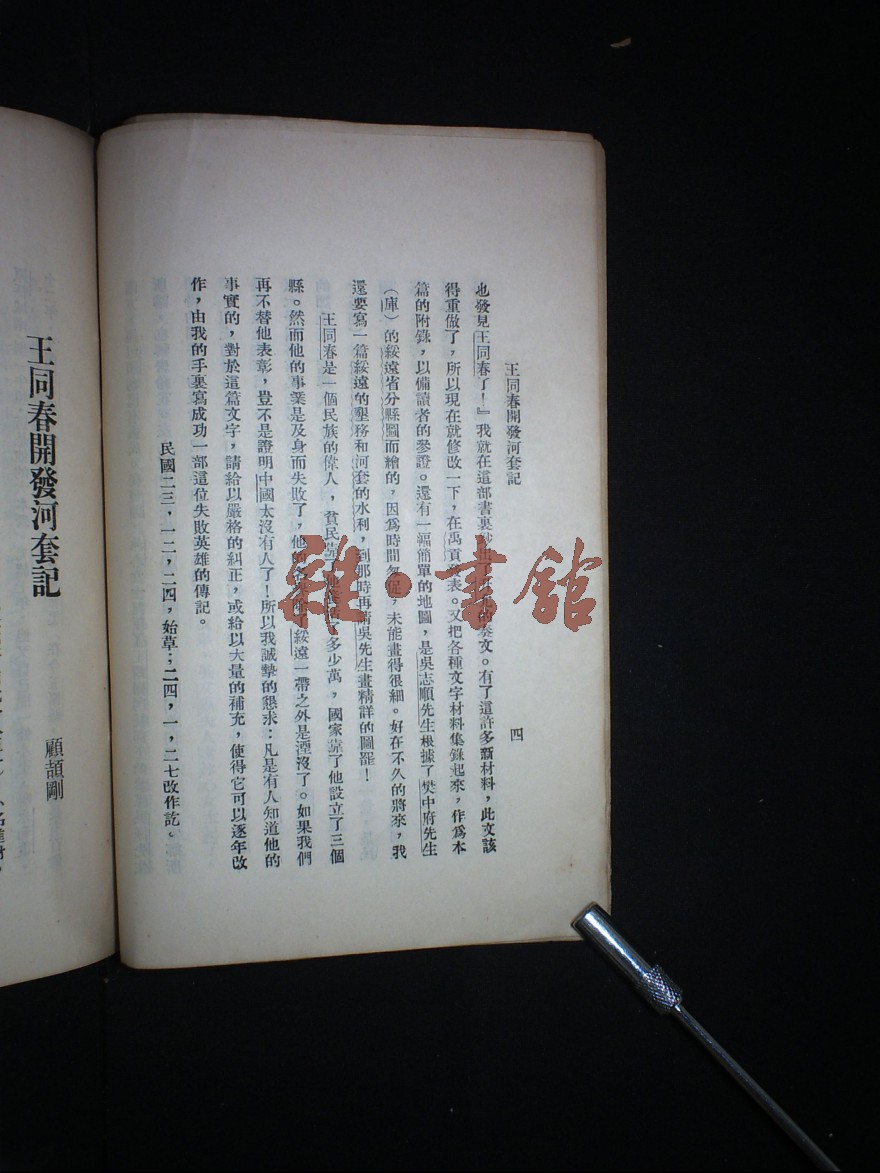 王同春開發河套記
四
也發見王同春了！』我就在這部書裏鈔出了 的奏文。有了這許多新材料，此文該
得重做了，所以現在就修改一下，在禹貢發表。又把各種文字材料集錄起來，作爲本
篇的附錄，以備讀者的參證。還有一幅簡單的地圖，是吳志順先生根據了樊中府先生
（庫）的綏遠省分縣圖而繪的，因爲時間匆促，未能畫得很細。好在不久的將來，我
還要寫一篇綏遠的墾務和河套的水利，到那時再請吳先生畫精詳的圖罷！
王同春是一個民族的偉人，貧民靠了他 多少萬，國家靠了他設立了三個
縣。然而他的事業是及身而失敗了，他的 除了綏遠一帶之外是湮沒了。如果我們
再不替他表彰，豈不是證明中國太沒有人了！所以我誠摯的懇求：凡是有人知道他的
事實的，對於這篇文字，請給以嚴格的糾正，或給以大量的補充，使得它可以逐年改
作，由我的手裏寫成功一部這位失敗英雄的傳記。
民國二三，一二，二四，始草；二四，一，二七改作訖。
王同春開發河套記
顧頡剛
雜·書館